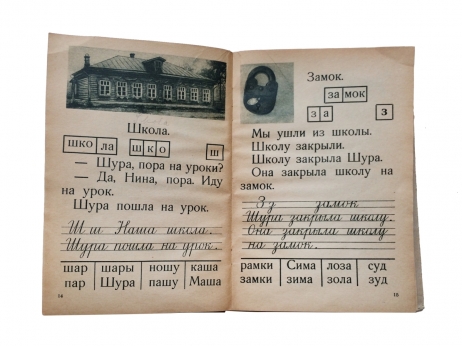 Школа.
шко ла ш к о ш
— Шура, пора на уроки?
— Да, Нина, пора. Иду
на урок.
Шура пошла на урок.
Ш ш Наша школа.
Шура пошла на урок.
шар шары ношу каша
пар Шура пашу Маша
14
Замок.
за мок
з а з
Мы ушли из школы.
Школу закрыли.
Школу закрыла Шура.
Она закрыла школу на
замок.
З з замок
Шура закрыла школу.
Она закрыла школу
на замок.
рамки Сима лоза суд
замки зима зола зуд
15